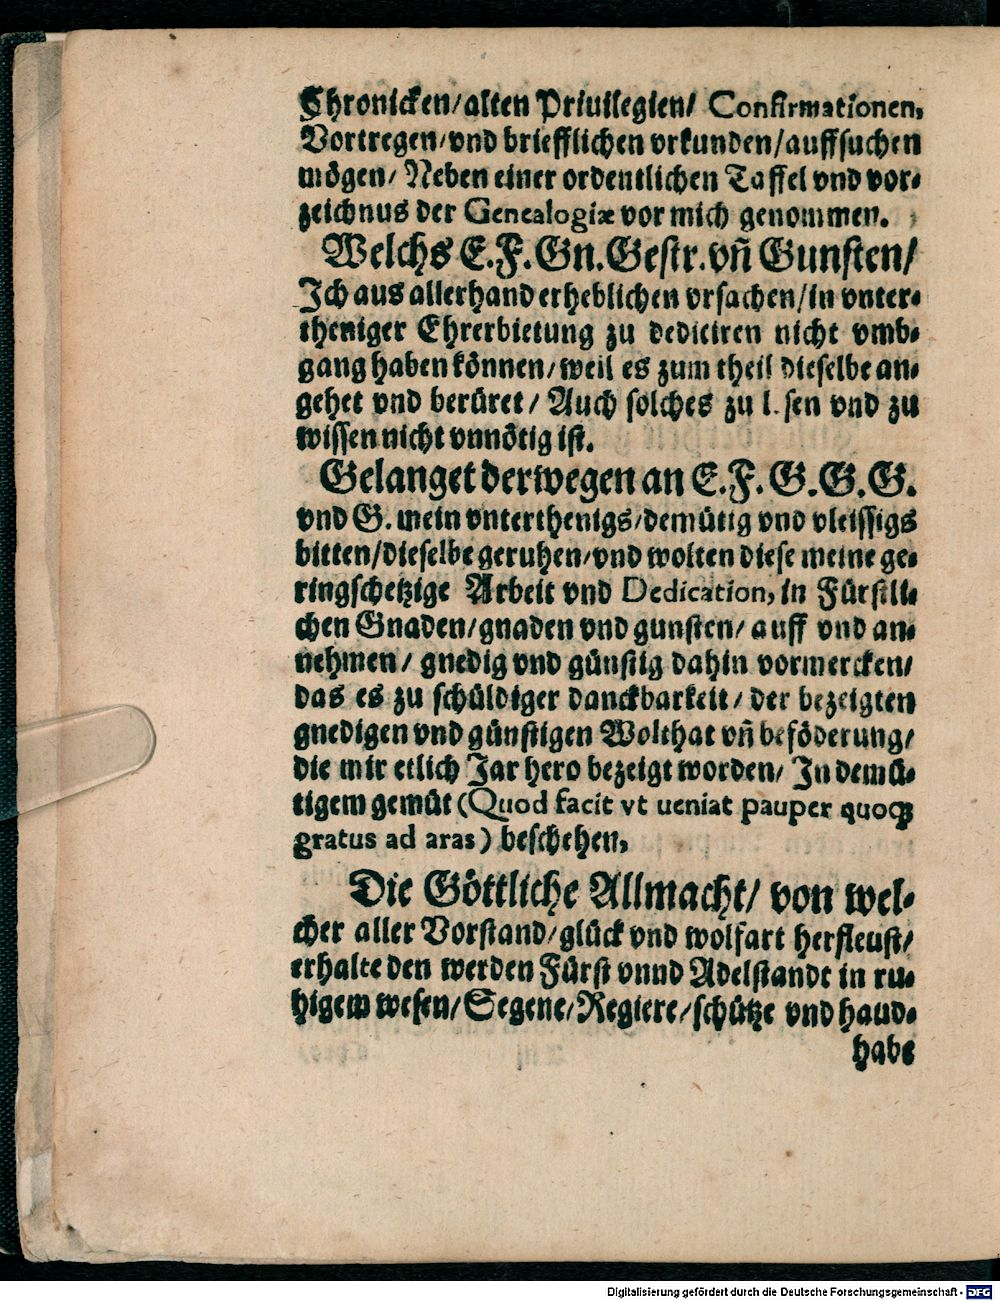 Chronicken/alten Priuilegien/ Confirmationen,
Vortregen/vnd briefflichen vrkunden/auffsuchen
mögen/ Neben einer ordentlichen Taffel vnd vor-
zeichnus der Genealogiæ vor mich genommen.
Welchs E.F.Gn.Gestr.vñ Gunsten/
Ich aus allerhand erheblichen vrsachen/in vnter-
theniger Ehrerbietung zu dediciren nicht vmb-
gang haben können/weil es zum theil dieselbe an-
gehet vnd berüret/ Auch solches zu l.sen vnd zu
wissen nicht vnnötig ist.
Gelanget derwegen an E.F.G.G.G.
vnd G. mein vnterthenigs/demütig vnd vleissigs
bitten/dieselbe geruhen/vnd wolten diese meine ge-
ringschetzige Arbeit vnd Dedication, in Fürstli-
chen Gnaden/gnaden vnd gunsten/ auff vnd an-
nehmen/ gnedig vnd günstig dahin vormercken/
das es zu schüldiger danckbarkeit/ der bezeigten
gnedigen vnd günstigen Wolthat vñ beföderung/
die mir etlich Jar hero bezeigt worden/ In demü-
tigem gemüt (Quod facit vt ueniat pauper quoqꝫ
gratus ad aras) beschehen,
Die Göttliche Allmacht/ von wel-
cher aller Vorstand/glück vnd wolfart herfleust/
erhalte den werden Fürst vnnd Adelstandt in ru-
higem wesen/Segene/Regiere/schütze vnd hand-
habe
Digitalisierung gefördert durch die Deutsche Forschungsgemeinschaft - DFG